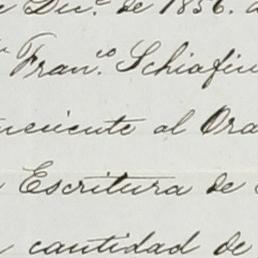 Dic.e de 1856.
Fran.co Schiafin
neciente al Ora
Escritura de
cantidad de